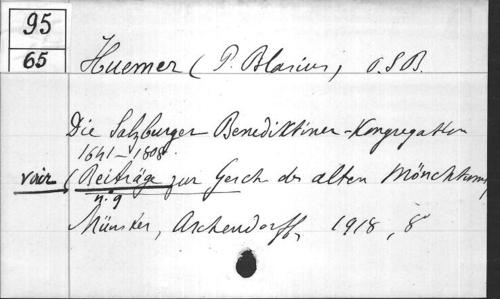 95
65
Huemer (P. Blasius, O.S.B.
Die Salzburger Benediktiner-Kongregation
1641-1808.
voir (Beiträge zur Gesch des alten Mönchtums,
n. 9
Münster, Aschendorff, 1918, 8°